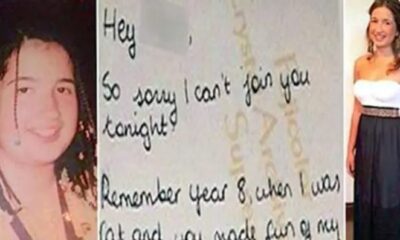 Hey
,
So sorry I can't join you
tonight
Remember year 8, when I was
fat and you made fun of my